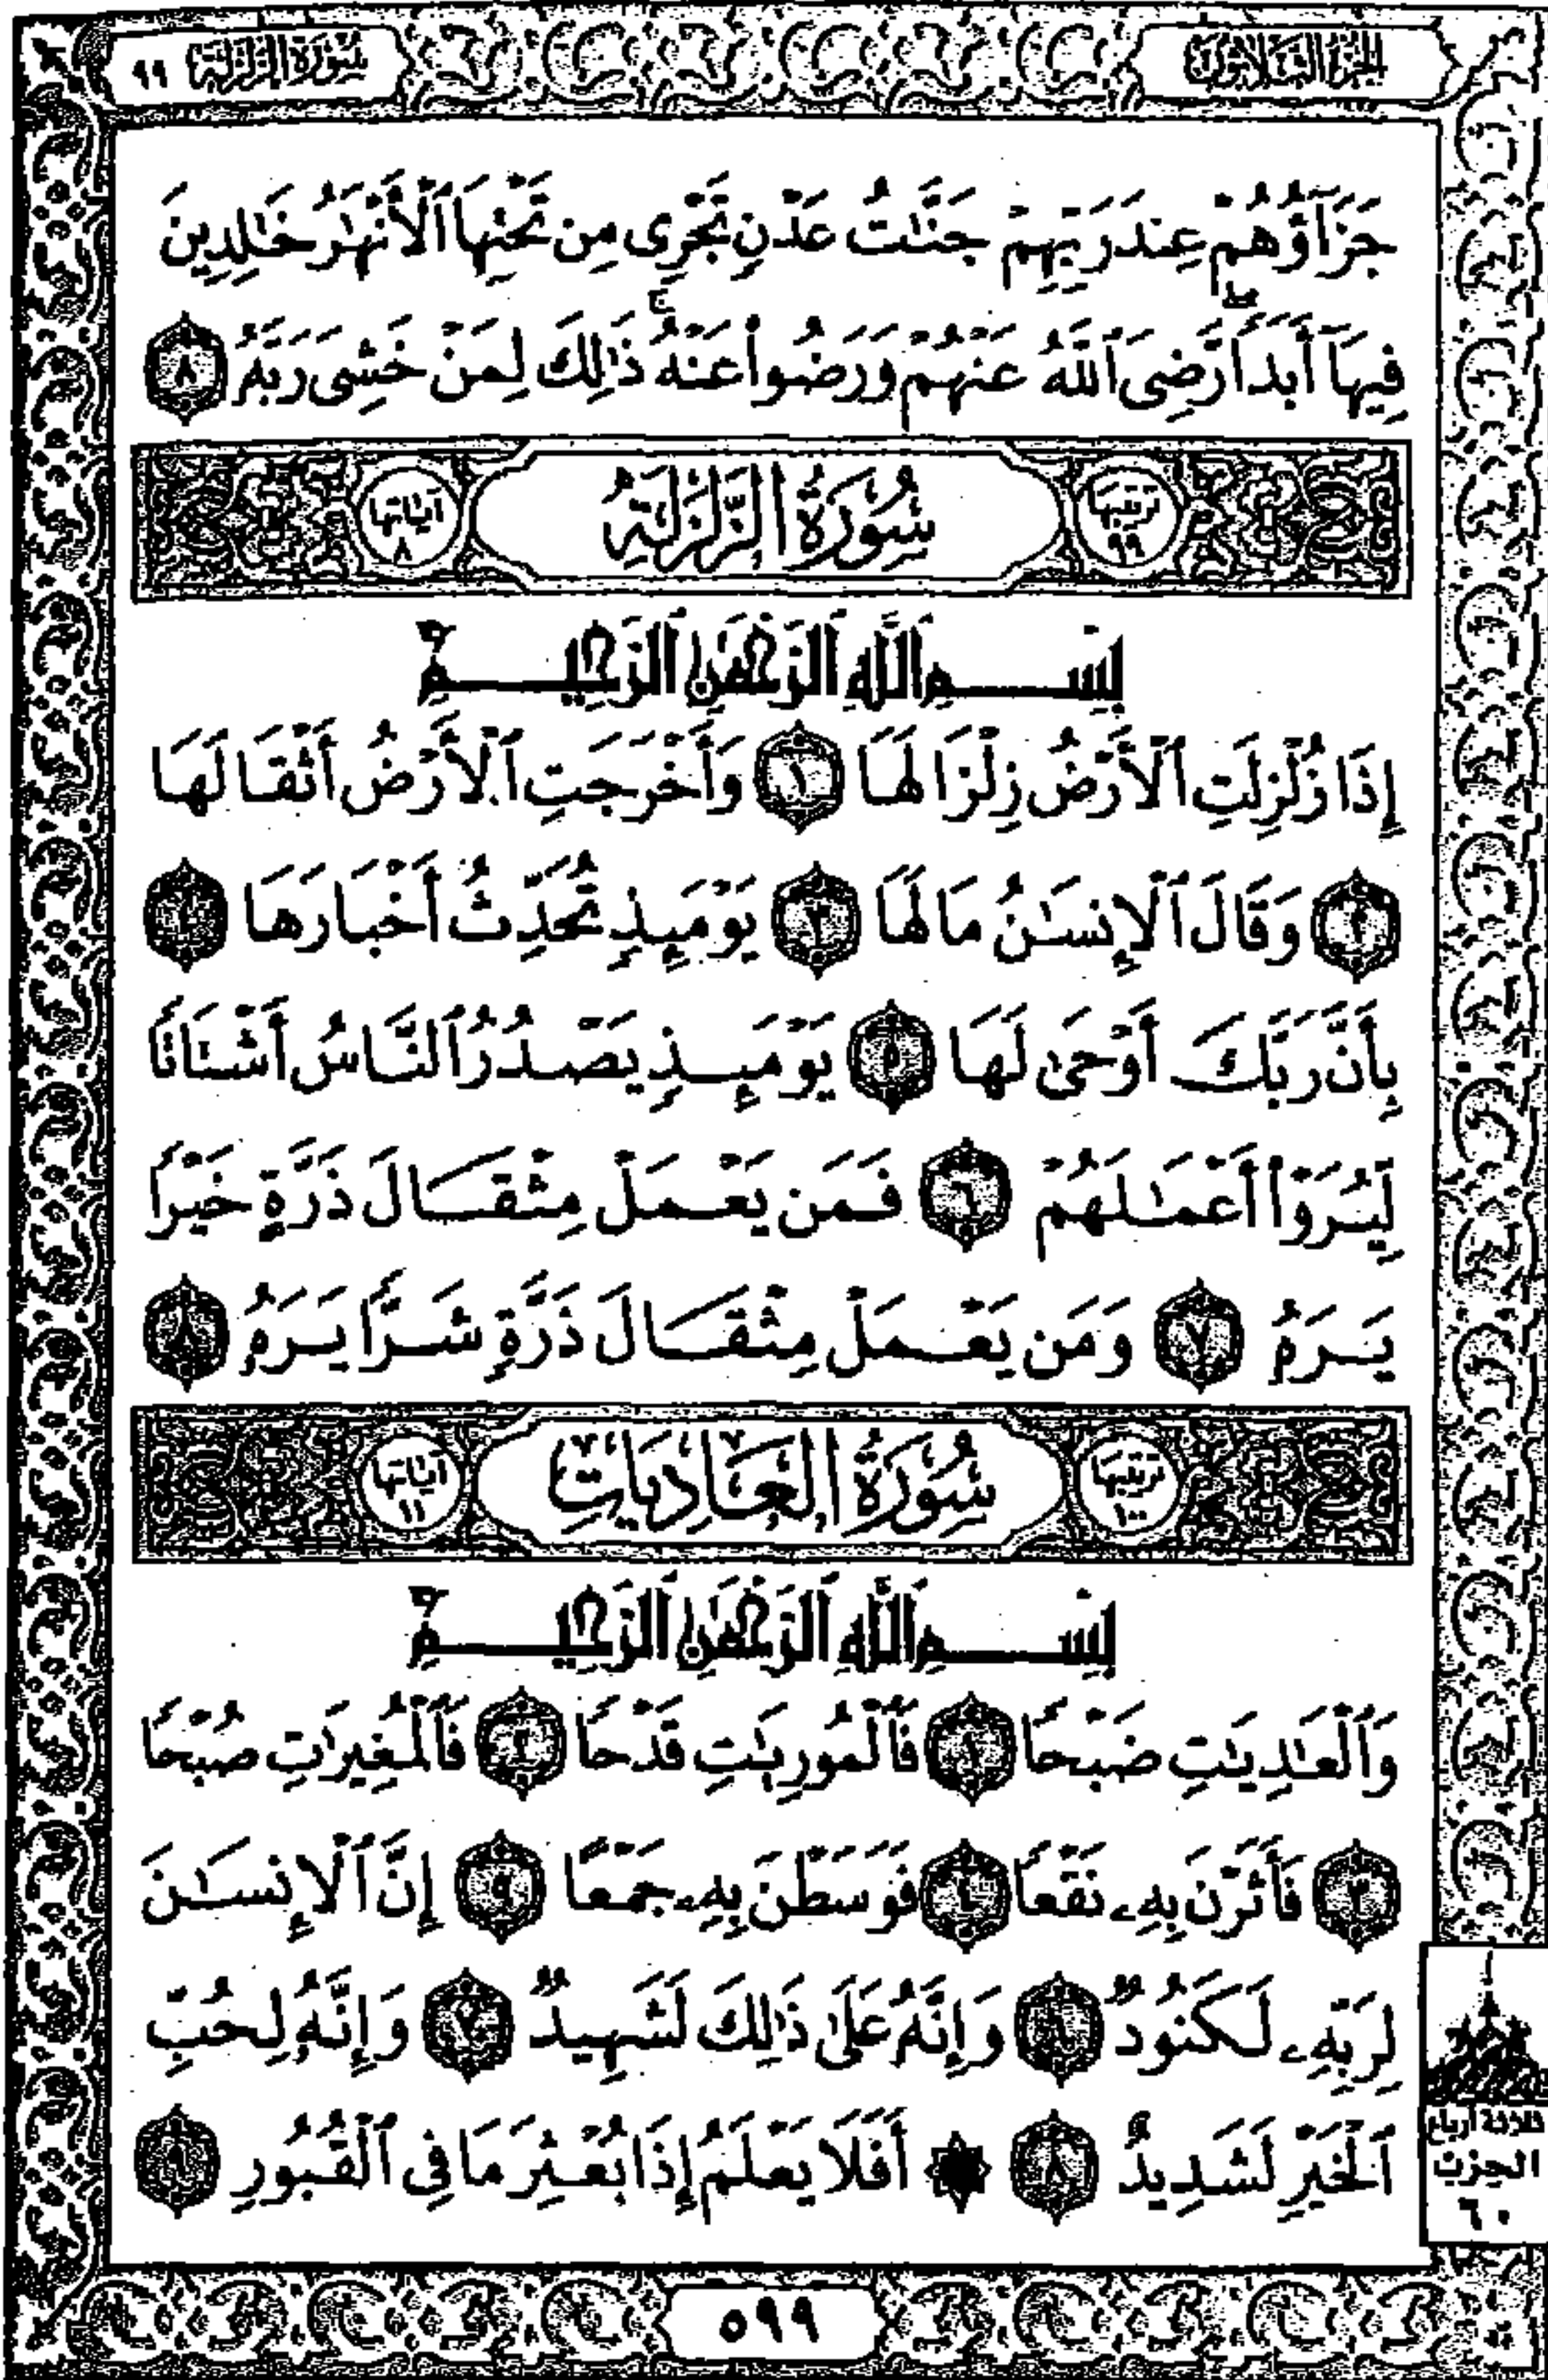 الجزء الثلاثون
سورة الزلزلة ٩٩
جَزَآؤُهُمْ عِندَ رَبِّهِمْ جَنَّٰتُ عَدْنٍ تَجْرِى مِن تَحْتِهَا ٱلْأَنْهَٰرُ خَٰلِدِينَ
فِيهَآ أَبَدًا ۖ رَّضِىَ ٱللَّهُ عَنْهُمْ وَرَضُوا۟ عَنْهُ ۚ ذَٰلِكَ لِمَنْ خَشِىَ رَبَّهُۥ ٨
ترتيبها ٩٩ سُورَةُ الزَّلْزَلَةِ آياتها ٨
بِسْمِ ٱللَّهِ ٱلرَّحْمَٰنِ ٱلرَّحِيمِ
إِذَا زُلْزِلَتِ ٱلْأَرْضُ زِلْزَالَهَا ١ وَأَخْرَجَتِ ٱلْأَرْضُ أَثْقَالَهَا
٢ وَقَالَ ٱلْإِنسَٰنُ مَا لَهَا ٣ يَوْمَئِذٍ تُحَدِّثُ أَخْبَارَهَا ٤
بِأَنَّ رَبَّكَ أَوْحَىٰ لَهَا ٥ يَوْمَئِذٍ يَصْدُرُ ٱلنَّاسُ أَشْتَاتًا
لِّيُرَوْا۟ أَعْمَٰلَهُمْ ٦ فَمَن يَعْمَلْ مِثْقَالَ ذَرَّةٍ خَيْرًا
يَرَهُۥ ٧ وَمَن يَعْمَلْ مِثْقَالَ ذَرَّةٍ شَرًّا يَرَهُۥ ٨
ترتيبها ١٠٠ سُورَةُ العَادِيَاتِ آياتها ١١
بِسْمِ ٱللَّهِ ٱلرَّحْمَٰنِ ٱلرَّحِيمِ
وَٱلْعَٰدِيَٰتِ ضَبْحًا ١ فَٱلْمُورِيَٰتِ قَدْحًا ٢ فَٱلْمُغِيرَٰتِ صُبْحًا
٣ فَأَثَرْنَ بِهِۦ نَقْعًا ٤ فَوَسَطْنَ بِهِۦ جَمْعًا ٥ إِنَّ ٱلْإِنسَٰنَ
لِرَبِّهِۦ لَكَنُودٌ ٦ وَإِنَّهُۥ عَلَىٰ ذَٰلِكَ لَشَهِيدٌ ٧ وَإِنَّهُۥ لِحُبِّ
ٱلْخَيْرِ لَشَدِيدٌ ٨ ۞ أَفَلَا يَعْلَمُ إِذَا بُعْثِرَ مَا فِى ٱلْقُبُورِ ٩
ثلاثة أرباع
الحزب
٦٠
٥٩٩